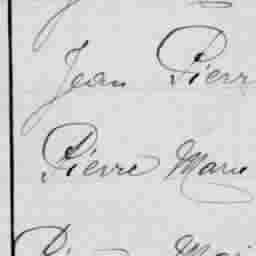 Jean Pierr
Pierre Marie